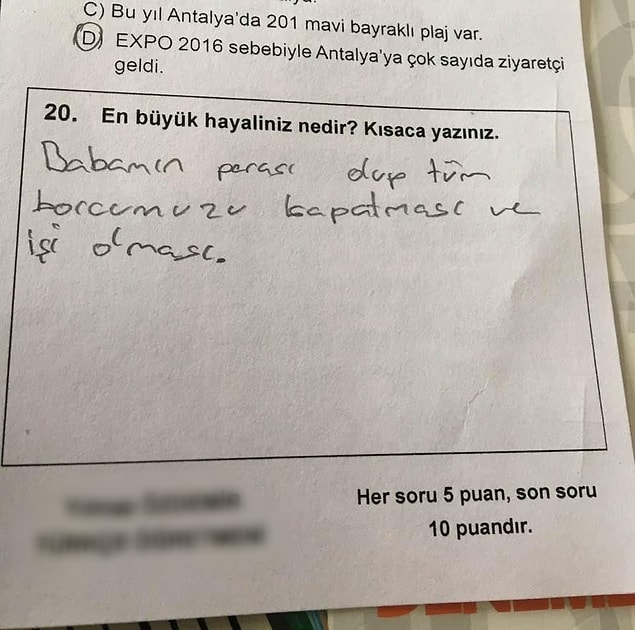 C) Bu yıl Antalya'da 201 mavi bayraklı plaj var.
D) EXPO 2016 sebebiyle Antalya'ya çok sayıda ziyaretçi
geldi.
20. En büyük hayaliniz nedir? Kısaca yazınız.
Babamın parası olup tüm
borcumuzu kapatması ve
işi olması.
Her soru 5 puan, son soru
10 puandır.